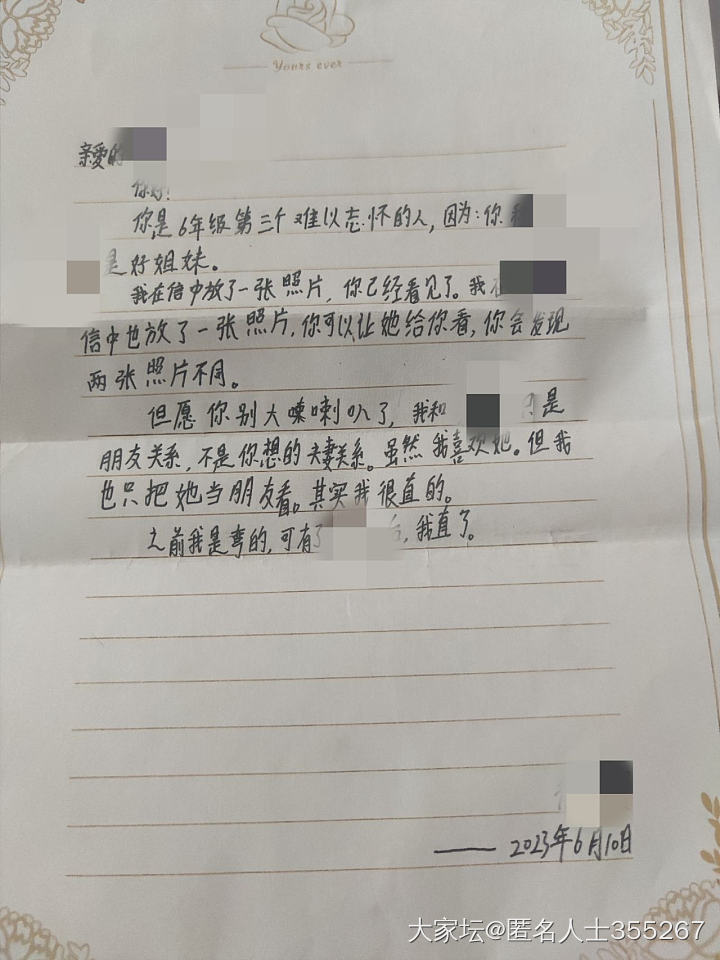 Yours ever
亲爱的
你好！
你是6年级第三个难以忘怀的人，因为：你
是好姐妹。
我在信中放了一张照片，你已经看见了。我在
信中也放了一张照片，你可以让她给你看，你会发现
两张照片不同。
但愿你别大嗓喇叭了，我和 只是
朋友关系，不是你想的夫妻关系。虽然我喜欢她。但我
也只把她当朋友看。其实我很直的。
之前我是弯的，可有了 后，我直了。
—— 2023年6月10日
大家坛@匿名人士355267